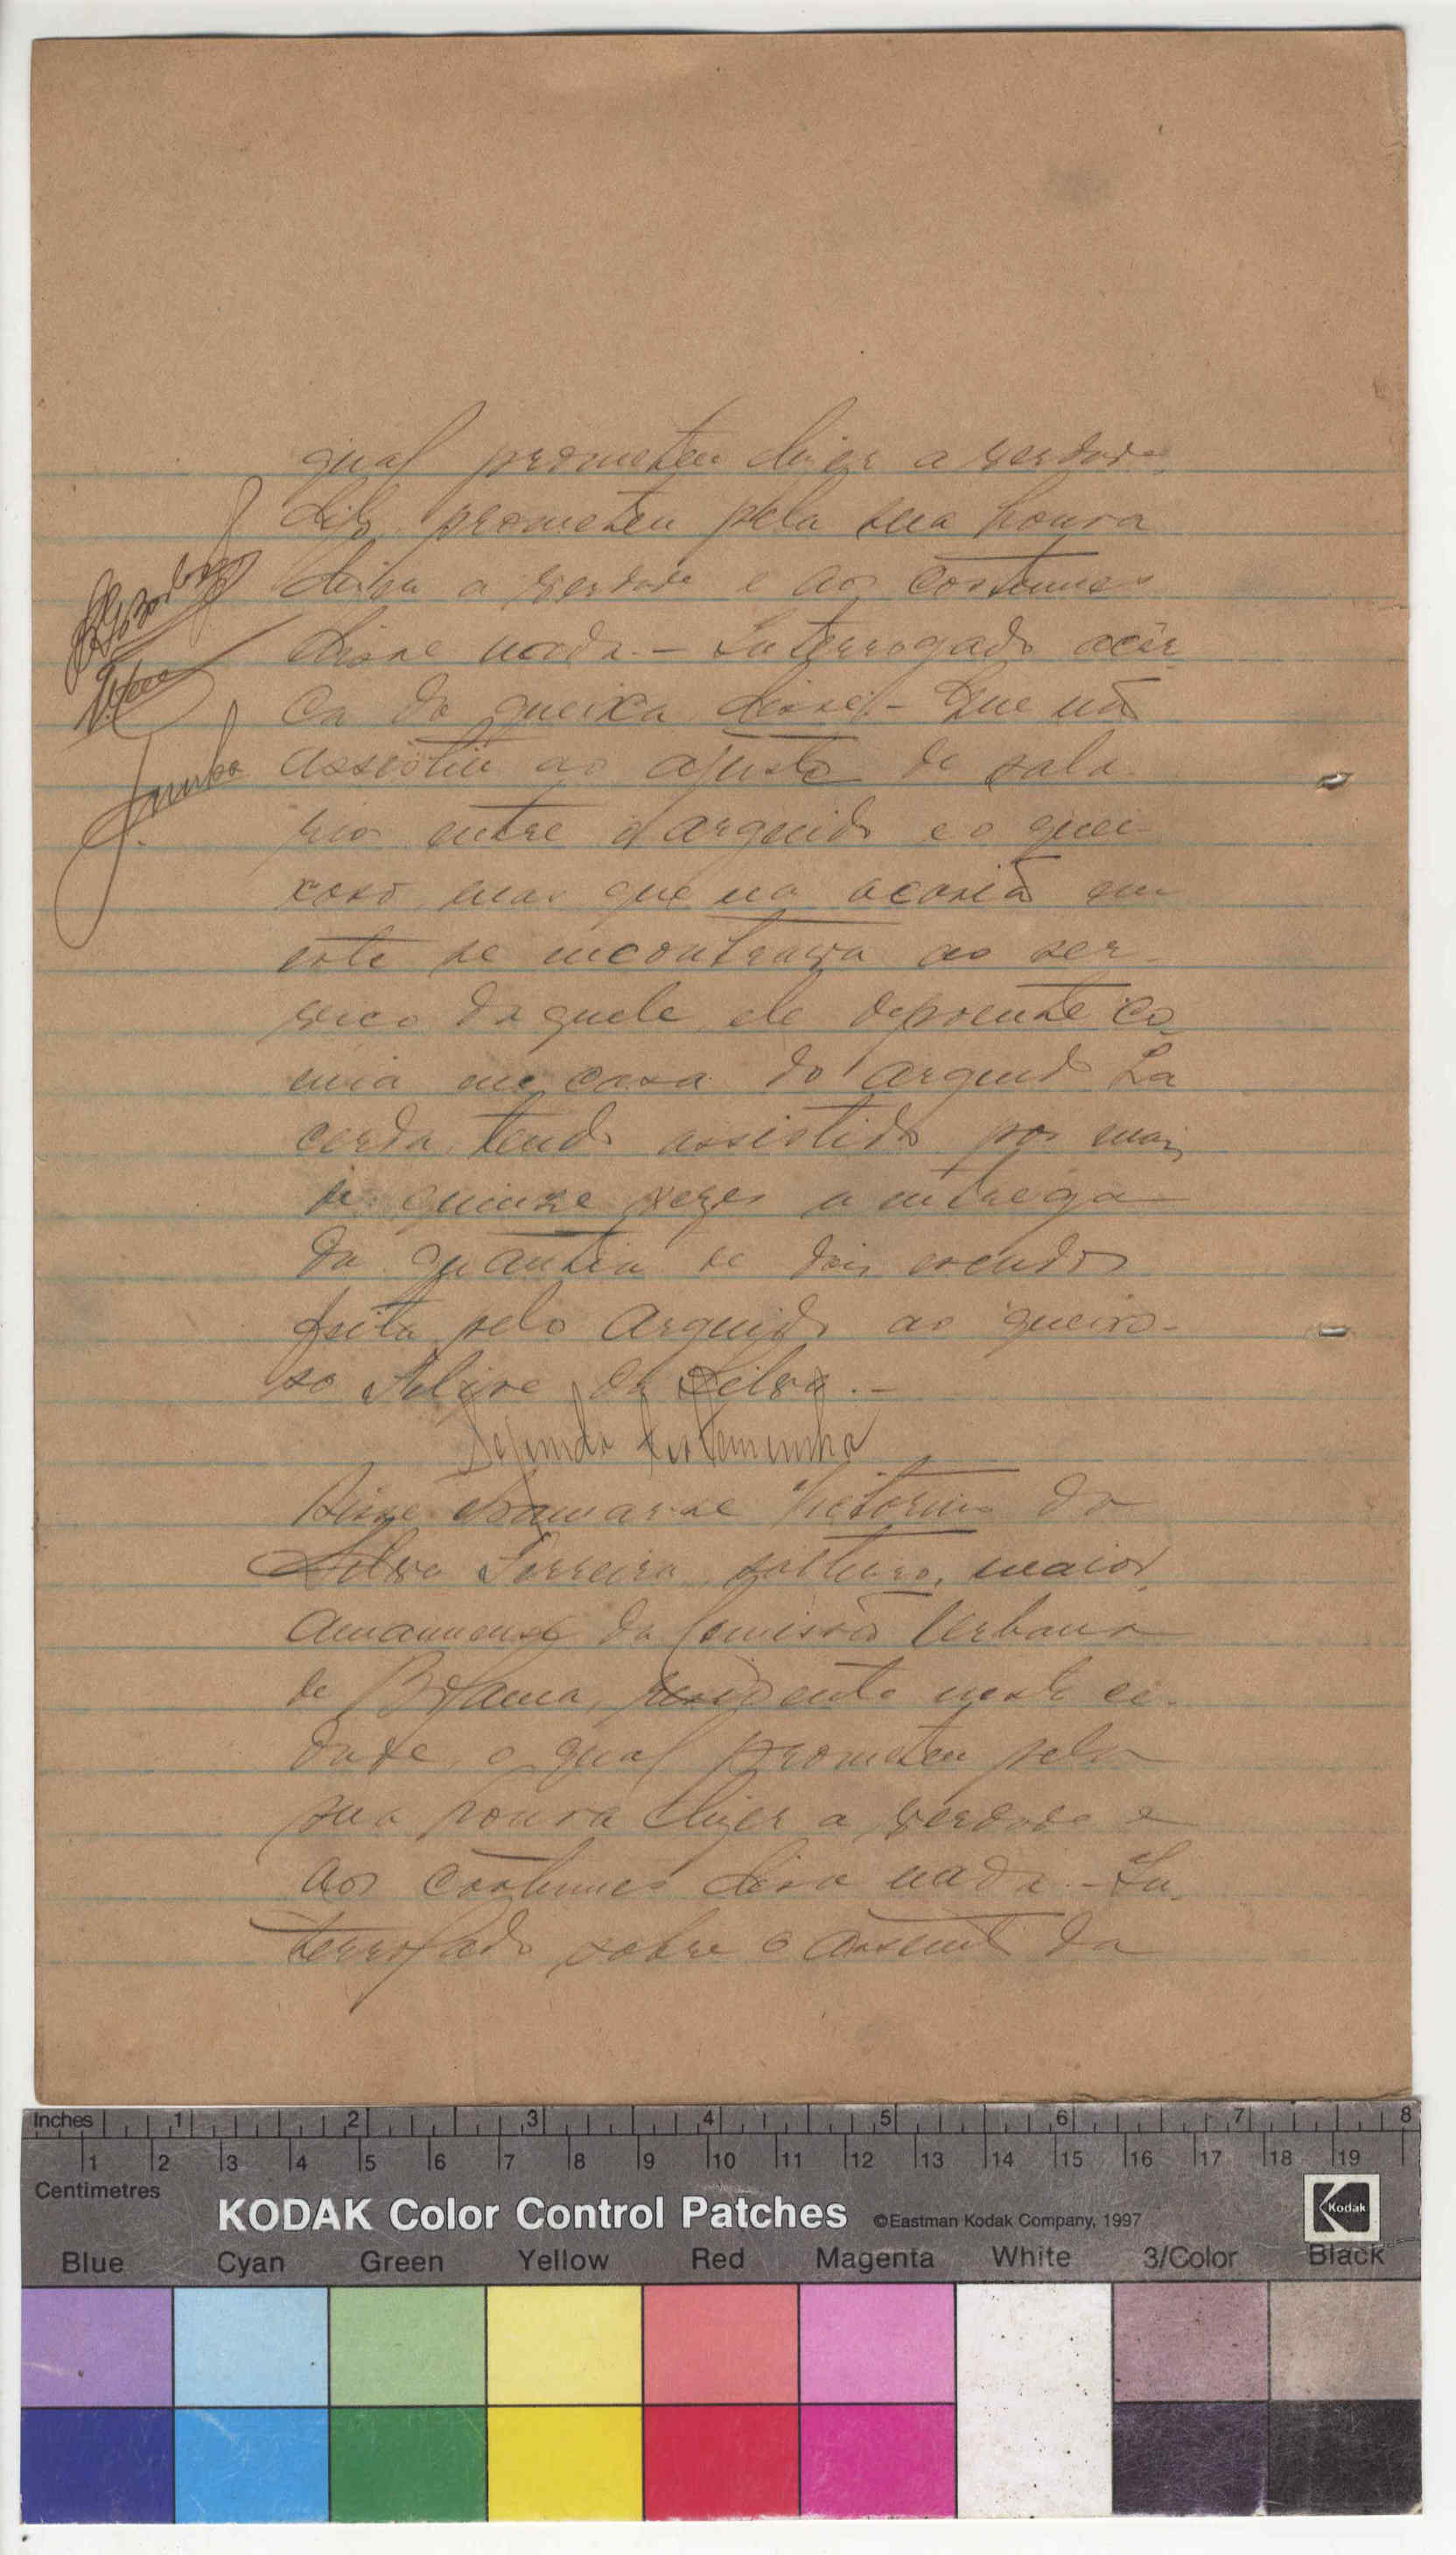 qual prometeu dizer a verdade
digo prometeu pela sua honra
dizer a verdade e aos costumes
disse nada. - Interrogado acêr
ca da queixa disse: - Que não
assistiu ao ajuste de sala
rio entre o arguido e o quei-
xoso mas que na ocasião em
este se encontrava ao ser-
viço daquele, ele depoente co
mia em casa do arguido La
cerda, tendo assistido por mais
de quinze vezes a entrega
da quantia de dois escudos
feita pelo arguido ao queixo-
so Felipe da Silva. -
Segunda testemunha
Disse chamar-se Victorino da
Silva Ferreira, solteiro, maior,
amanuense da Comissão Urbana
de Bolama, residente nesta ci-
dade, o qual prometeu pela
sua honra dizer a verdade e
aos costumes disse nada. - In-
terrogado sobre o assunto da
Inches 1 2 3 4 5 6 7 8
1 2 3 4 5 6 7 8 9 10 11 12 13 14 15 16 17 18 19
Centimetres
KODAK Color Control Patches ©Eastman Kodak Company, 1997 Kodak
Blue Cyan Green Yellow Red Magenta White 3/Color Black